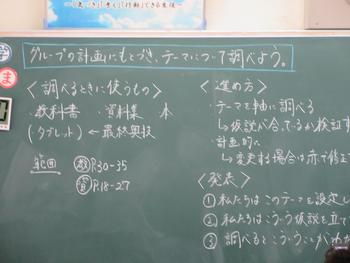 考え 行動 できる生徒
グループの計画にもとづき、テーマについて調べよう。
ま
〈調べるときに使うもの〉
・教科書 ・資料集 ・本
(タブレット) ← 最終奥技
範囲
教 P.30-35
資 P.18-27
〈進め方〉
・テーマを軸に調べる
↳仮説が合っているか検証す
・計画的に
↳変更する場合は赤で修正
〈発表〉
①私たちはこのテーマを設定し
②私たちはこういう仮説を立て
③調べるとこういうことがわか